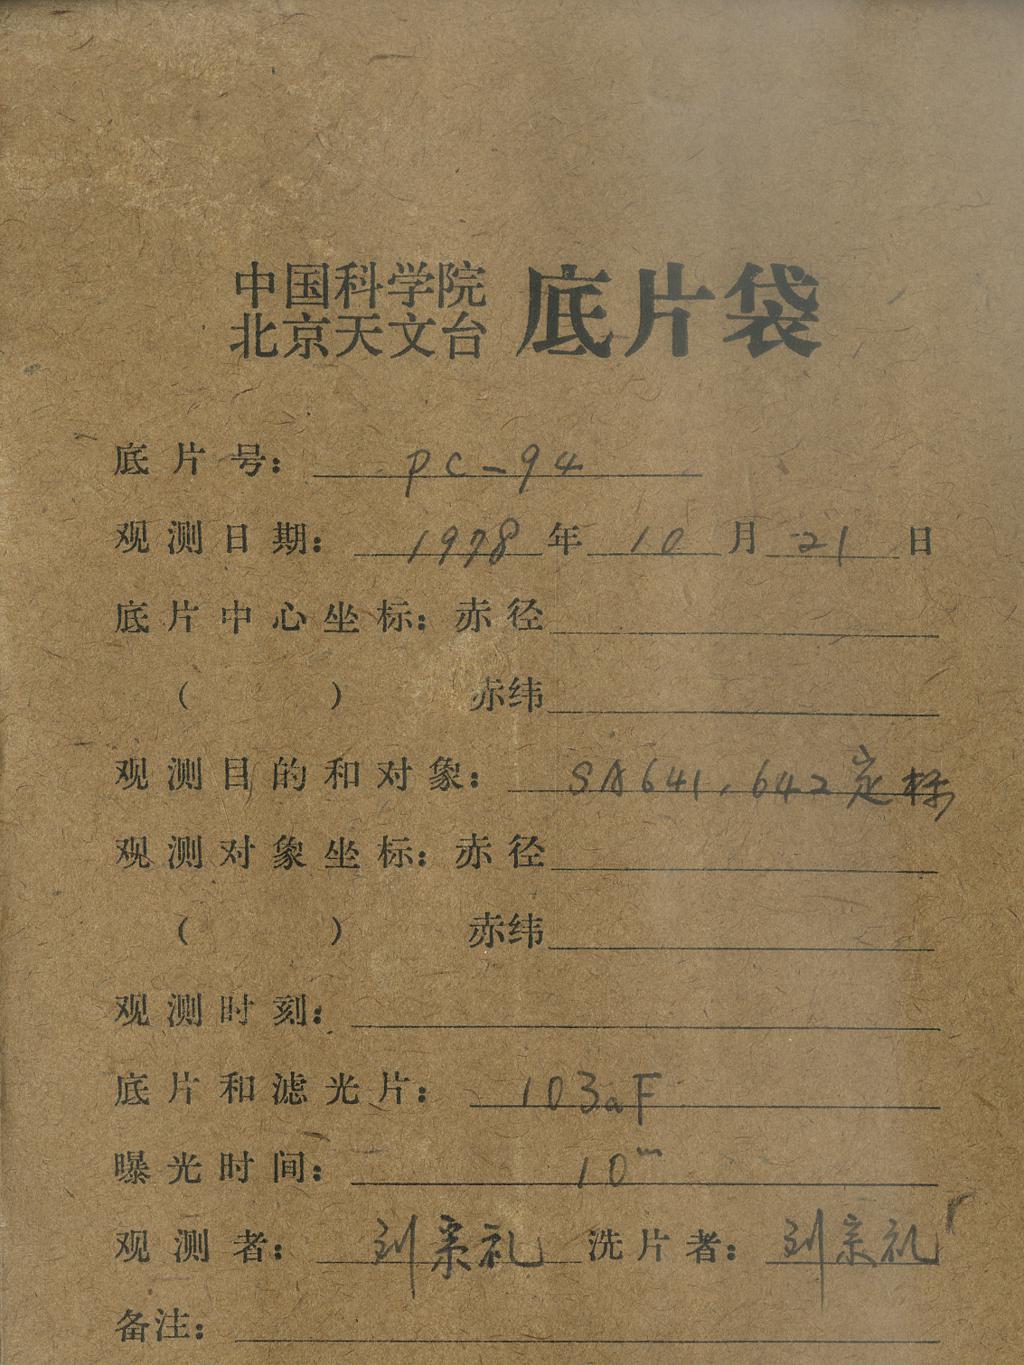 中国科学院
北京天文台 底片袋
底片号: PC-94
观测日期: 1978年10月21日
底片中心坐标: 赤径
( ) 赤纬
观测目的和对象: SA641, 642定标
观测对象坐标: 赤径
( ) 赤纬
观测时刻:
底片和滤光片: 103aF
曝光时间: 10m
观测者: 刘宗礼 洗片者: 刘宗礼
备注: